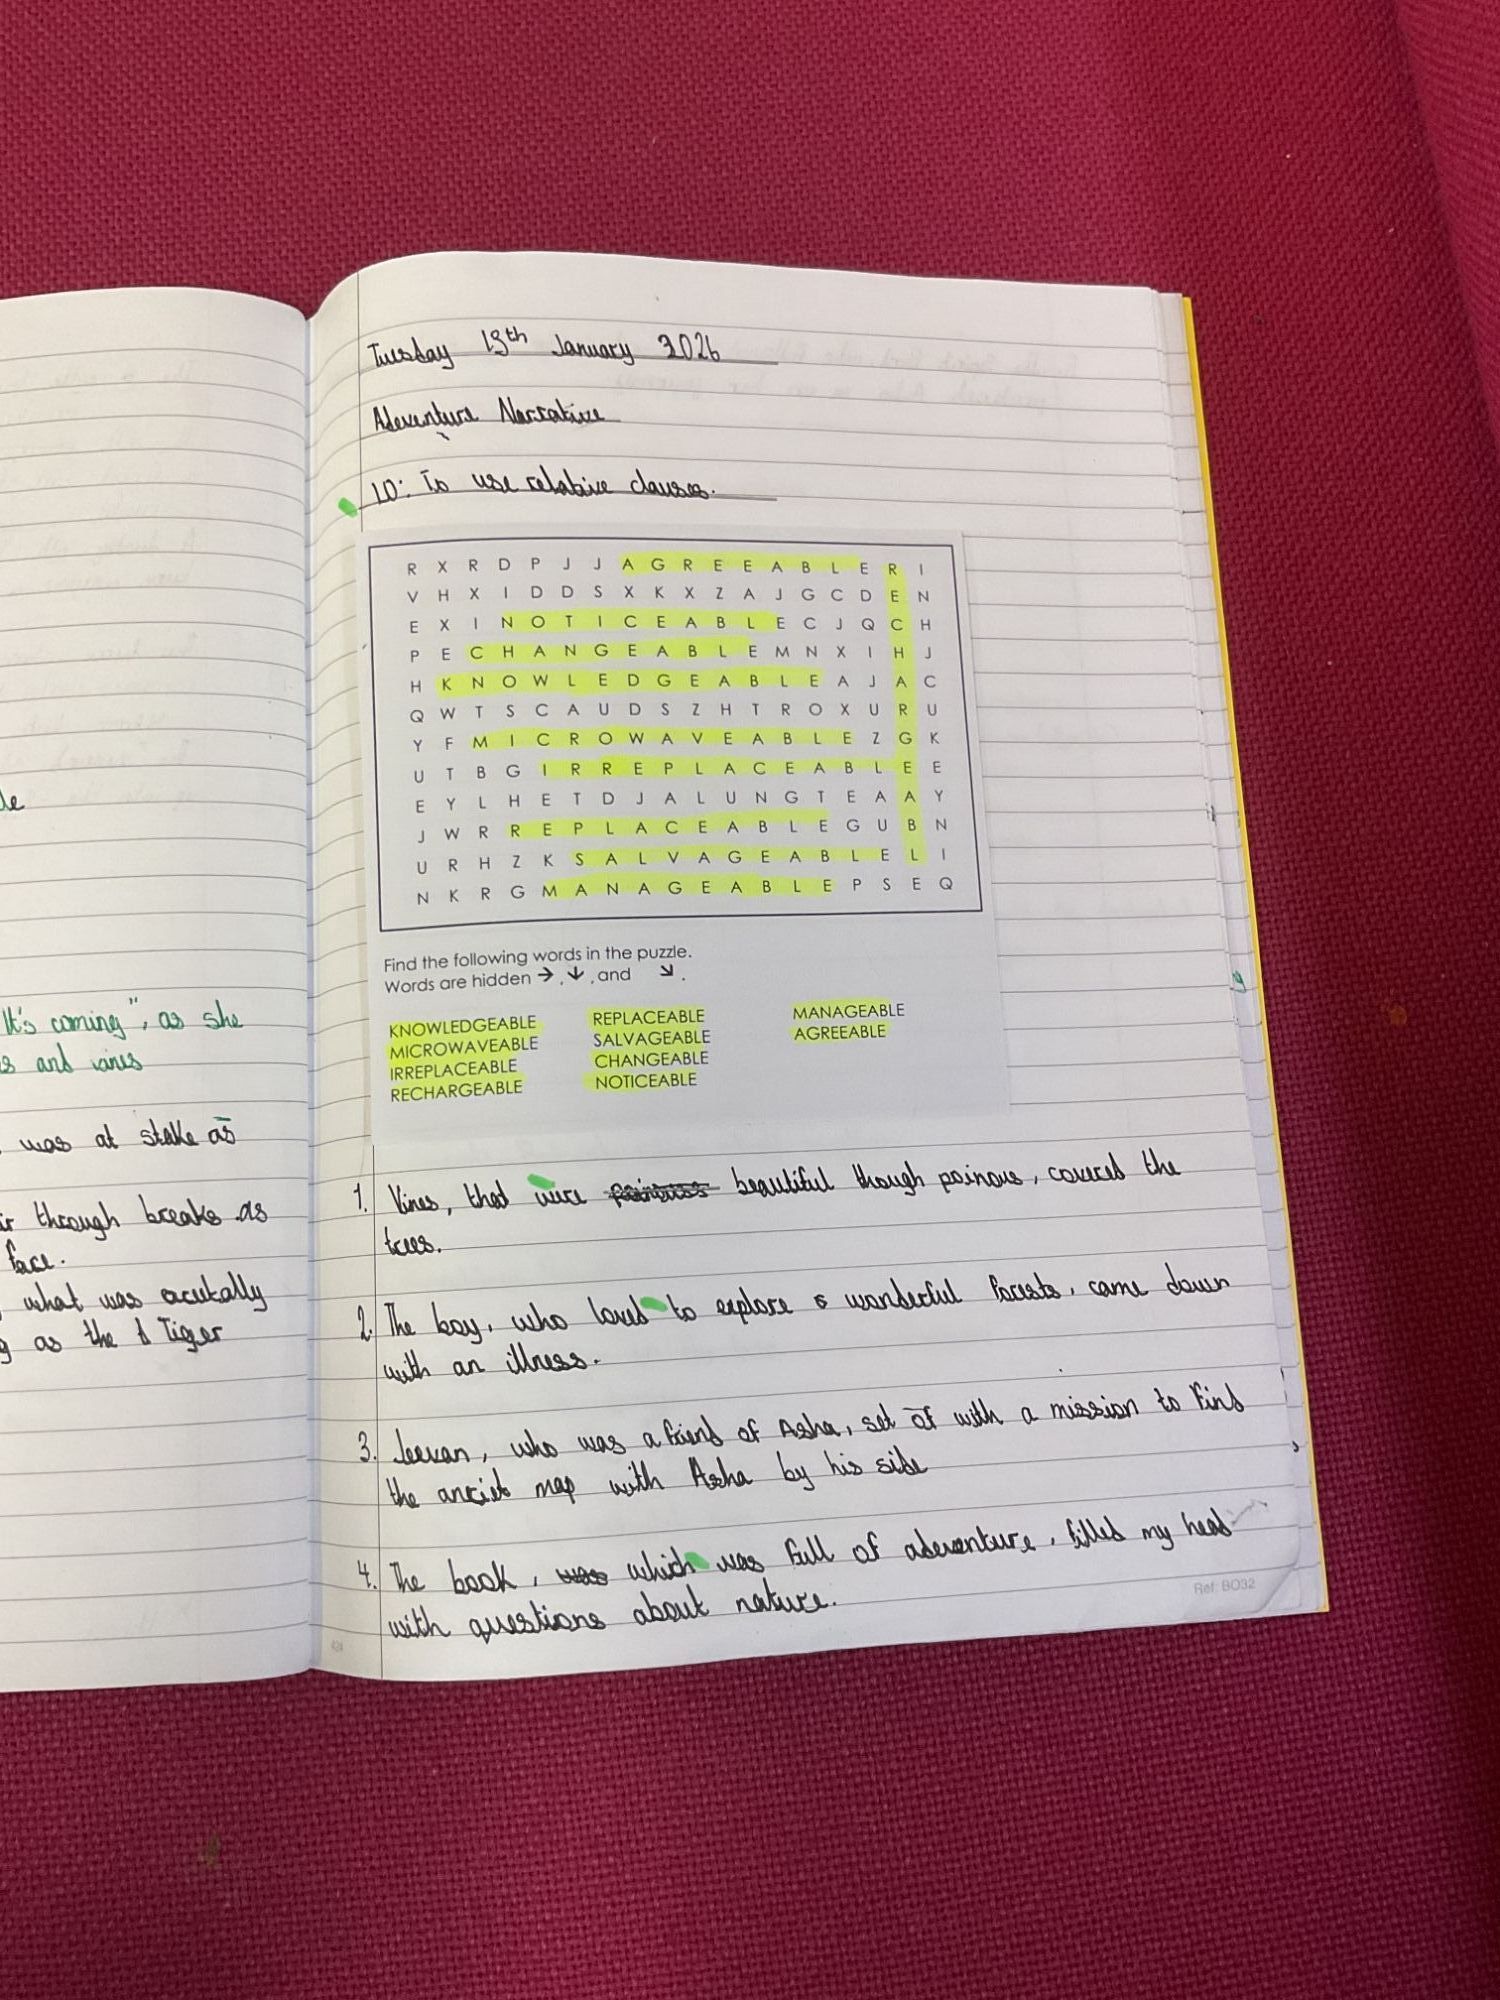 Tuesday 13th January 2026
Adeventure Narrative
LO: To use relative clauses.
R X R D P J J A G R E E A B L E R I
V H X I D D S X K X Z A J G C D E N
E X I N O T I C E A B L E C J Q C H
P E C H A N G E A B L E M N X I H J
H K N O W L E D G E A B L E A J A C
Q W T S C A U D S Z H T R O X U R U
Y F M I C R O W A V E A B L E Z G K
U T B G I R R E P L A C E A B L E E
E Y L H E T D J A L U N G T E A A Y
J W R R E P L A C E A B L E G U B N
U R H Z K S A L V A G E A B L E L I
N K R G M A N A G E A B L E P S E Q
Find the following words in the puzzle.
Words are hidden → , ↓ , and ↘ .
KNOWLEDGEABLE REPLACEABLE MANAGEABLE
MICROWAVEABLE SALVAGEABLE AGREEABLE
IRREPLACEABLE CHANGEABLE
RECHARGEABLE NOTICEABLE
1. Vines, that were beautiful though poinous, covered the
trees.
2. The boy, who loved to explore wonderful forests, came down
with an illness.
3. Jeevan, who was a friend of Asha, set of with a mission to find
the anciet map with Asha by his side
4. The book, which was full of adeventure, filled my head
with questions about nature.
Ref: BO32
It's coming", as she
s and vines
was at stake as
through breaks as
face.
what was acutally
g as the Tiger